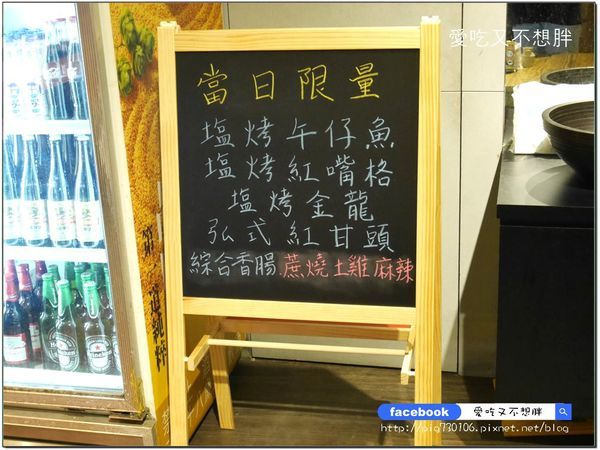 愛吃又不想胖
當日限量
塩烤午仔魚
塩烤紅嘴格
塩烤金龍
弘式紅甘頭
綜合香腸.蔗燒土雞麻辣
facebook 愛吃又不想胖
http://pig730106.pixnet.net/blog